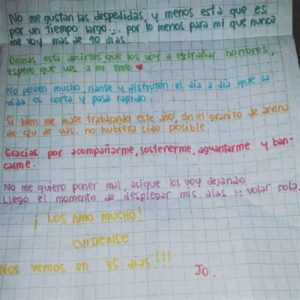 No me gustan las despedidas, y menos esta que es
por un tiempo largo... por lo menos para mi que nunca
me voy mas de 10 dias.
Demas esta decirles que los voy a extrañar hombres,
espero que uds. a mi tmb ♥
No peleen mucho, rianse y disfruten el dia a dia que la
vida es corta y pasa rapido.
Si bien me mate trabajando este año, sin el granito de arena
de c/u de uds. no hubiera sido posible.
Gracias por acompañarme, sostenerme, aguantarme y ban-
carme.
No me quiero poner mal, asique los voy dejando.
Llego el momento de desplegar mis alas y volar
¡LOS AMO MUCHO!
CUIDENSE
Nos vemos en 45 dias!!!
Jo.